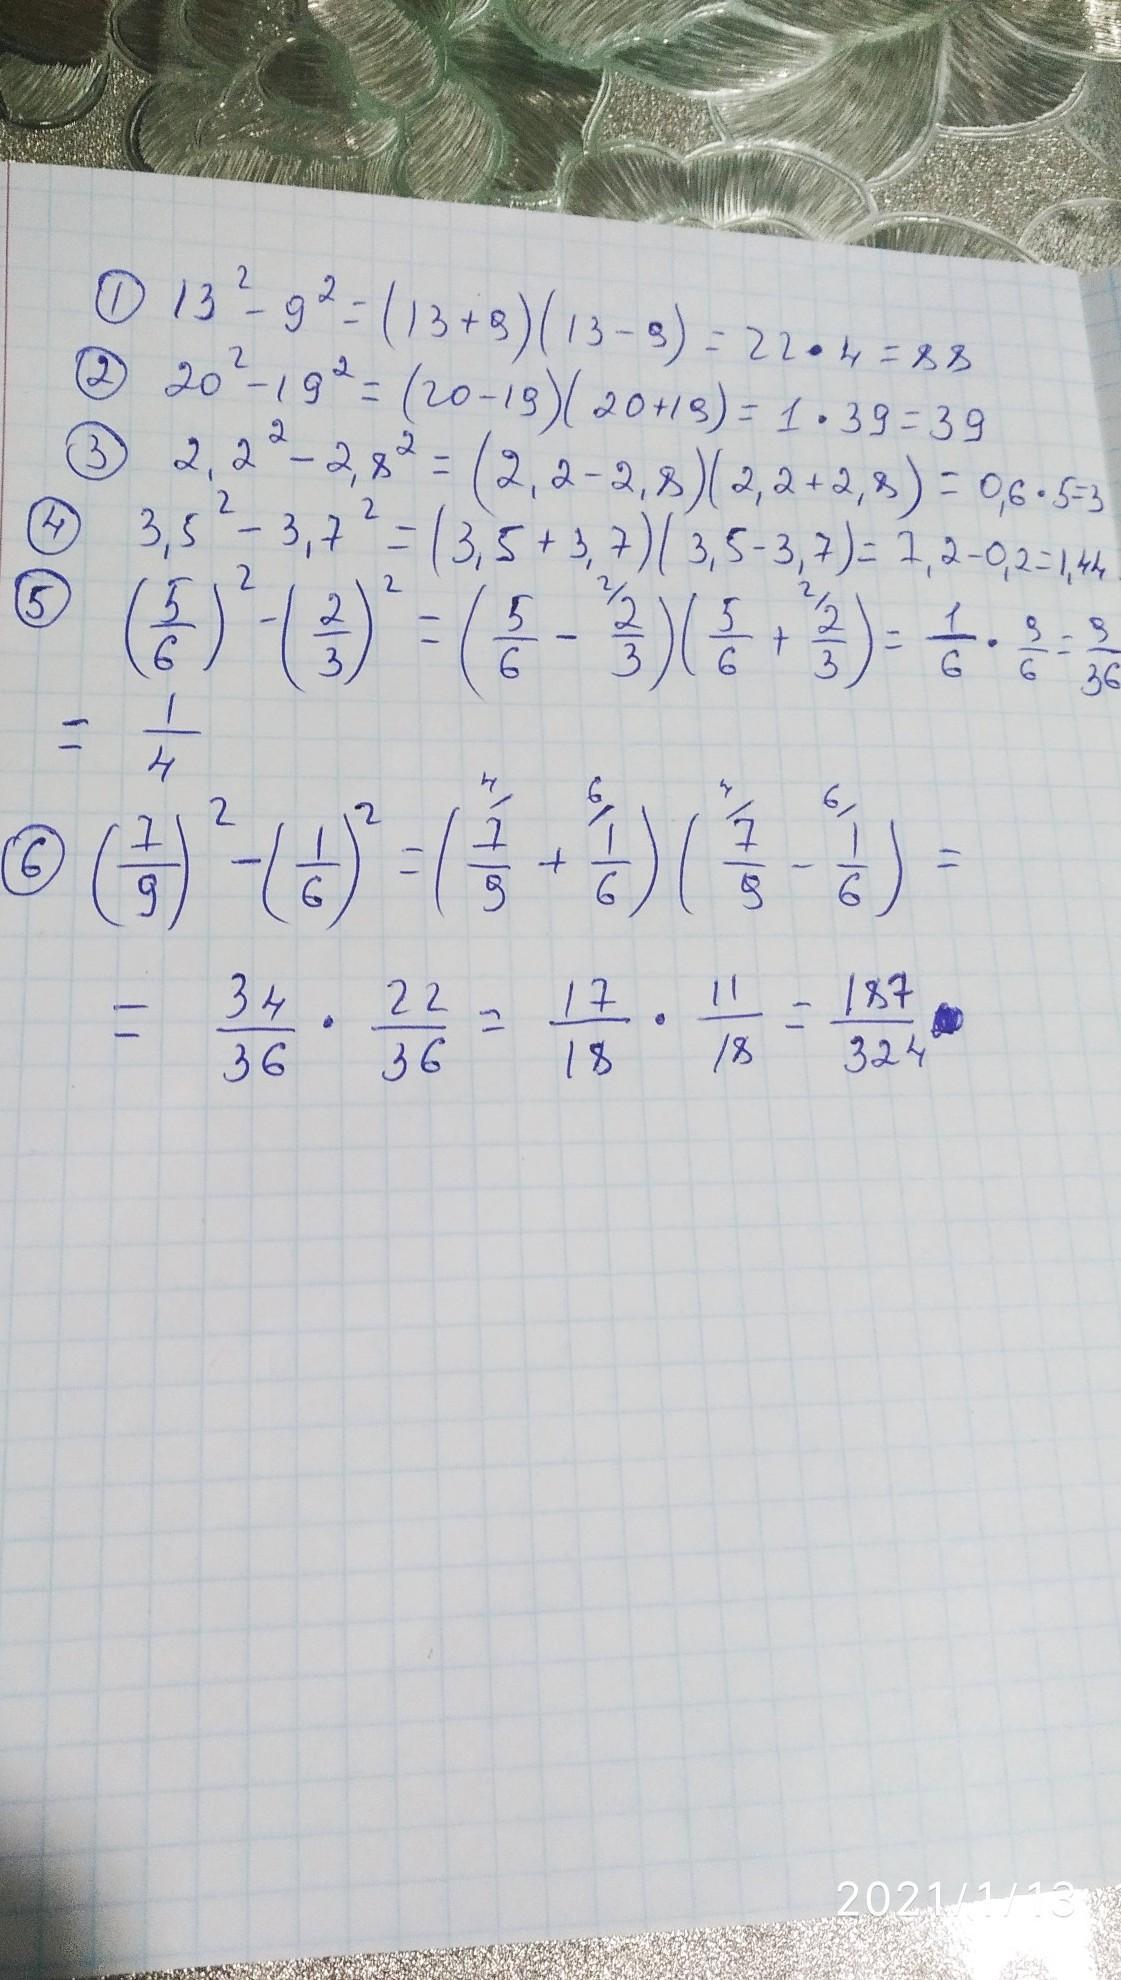 ① 13² - 9² = (13+9)(13-9) = 22 · 4 = 88
② 20² - 19² = (20-19)(20+19) = 1 · 39 = 39
③ 2,2² - 2,8² = (2,2-2,8)(2,2+2,8) = 0,6 · 5=3
④ 3,5² - 3,7² = (3,5+3,7)(3,5-3,7) = 7,2-0,2=1,44
⑤ (5/6)² - (2/3)² = (5/6 - ²⁄ 2/3)(5/6 + ²⁄ 2/3) = 1/6 · 9/6 = 9/36
= 1/4
⑥ (7/9)² - (1/6)² = (⁴⁄ 7/9 + ⁶⁄ 1/6)(⁴⁄ 7/9 - ⁶⁄ 1/6) =
= 34/36 · 22/36 = 17/18 · 11/18 = 187/324
2021/1/13